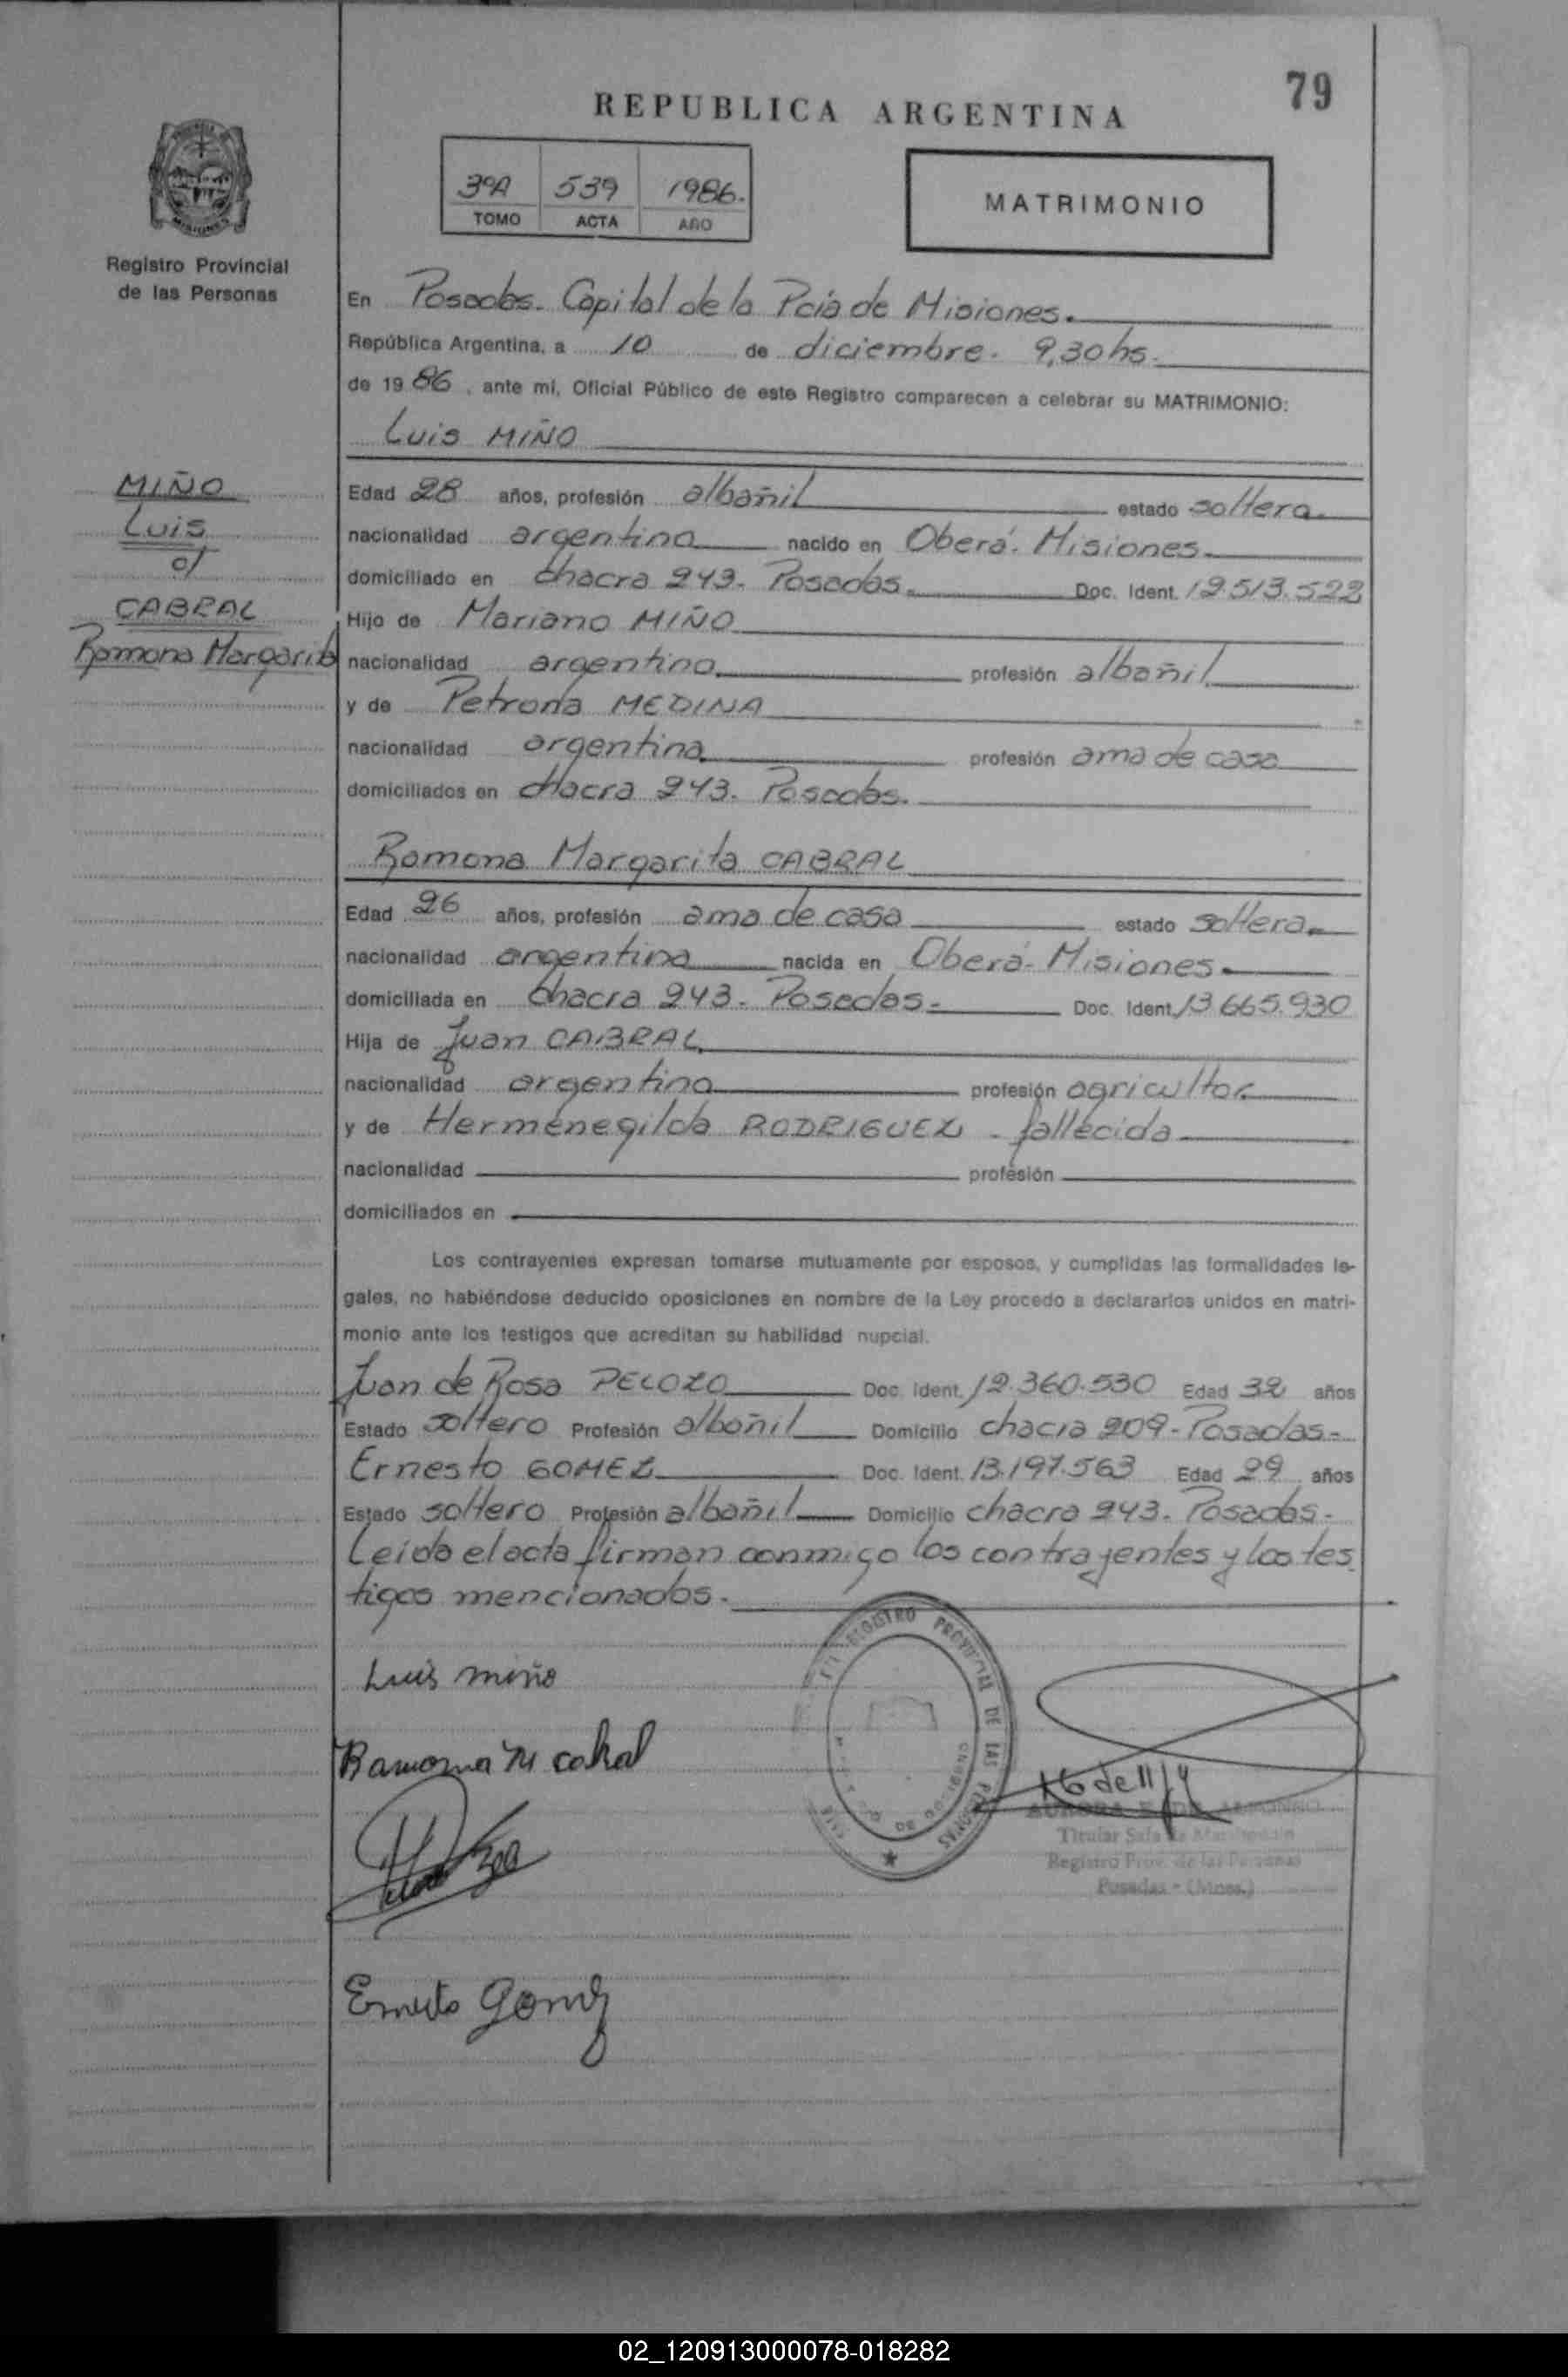 79
REPUBLICA ARGENTINA
3ºA 539 1986.
TOMO ACTA AÑO
MATRIMONIO
MISIONES
Registro Provincial
de las Personas
En Posadas. Capital de la Pcia de Misiones.
República Argentina, a 10 de diciembre. 9,30 hs.
de 1986, ante mí, Oficial Público de este Registro comparecen a celebrar su MATRIMONIO:
Luis MIÑO
MIÑO
Luis
c/
CABRAL
Ramona Margarita
Edad 28 años, profesión albañil estado soltera.
nacionalidad argentina nacido en Oberá. Misiones.
domiciliado en chacra 243. Posadas. Doc. Ident. 12.513.522
Hijo de Mariano MIÑO
nacionalidad argentino. profesión albañil
y de Petrona MEDINA
nacionalidad argentina. profesión ama de casa
domiciliados en chacra 243. Posadas.
Ramona Margarita CABRAL
Edad 26 años, profesión ama de casa estado soltera.
nacionalidad argentina nacida en Oberá- Misiones.
domiciliada en chacra 243. Posadas. Doc. Ident. 13.665.930
Hija de Juan CABRAL
nacionalidad argentino profesión agricultor.
y de Hermenegilda RODRIGUEZ - fallecida
nacionalidad profesión
domiciliados en
Los contrayentes expresan tomarse mutuamente por esposos, y cumplidas las formalidades le-
gales, no habiéndose deducido oposiciones en nombre de la Ley procedo a declararlos unidos en matri-
monio ante los testigos que acreditan su habilidad nupcial.
Juan de Rosa PELOZO Doc. Ident. 12.360.530 Edad 32 años
Estado soltero Profesión albañil Domicilio chacra 209- Posadas.-
Ernesto GOMEZ Doc. Ident. 13.197.563 Edad 29 años
Estado soltero Profesión albañil Domicilio chacra 243. Posadas.
Leida el acta firman conmigo los contrayentes y los tes
tigos mencionados.
Luis miño
Ramona M cabral
REGISTRO PROVINCIAL DE LAS PERSONAS
AURORA
Titular Sala de
Registro Prov. de las Personas
Posadas - (Mnes.)
Ernesto Gomez
02_120913000078-018282